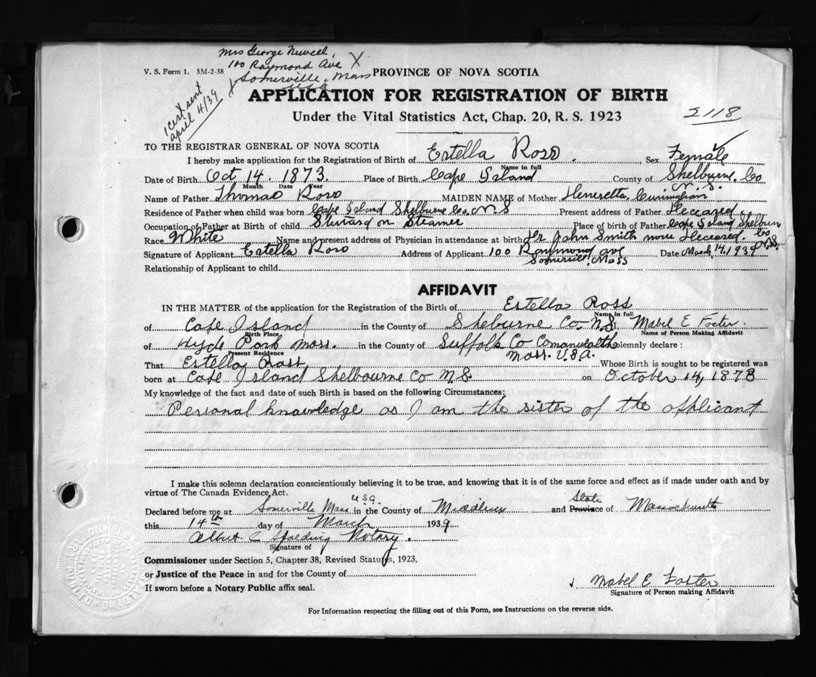 Mrs George Newell,
V. S. Form 1. 5M-2-38 100 Raymond Ave X
X Somerville, Mass
PROVINCE OF NOVA SCOTIA
1 cert sent
april 4/39
APPLICATION FOR REGISTRATION OF BIRTH
2118
Under the Vital Statistics Act, Chap. 20, R. S. 1923
TO THE REGISTRAR GENERAL OF NOVA SCOTIA
I hereby make application for the Registration of Birth of Estella Ross. Sex Female
Name in full
Date of Birth Oct 14. 1873. Place of Birth Cape Island County of Shelburne Co
Month Date Year N. S.
Name of Father Thomas Ross MAIDEN NAME of Mother Henrietta
Residence of Father when child was born Cape Island Shelburne Co. N S Present address of Father Deceased
Occupation of Father at Birth of child Steward on Steamer Place of birth of Father Cape Island Shelburn Co
Race White Name and present address of Physician in attendance at birth Dr John Smith now Deceased
Signature of Applicant Estella Ross Address of Applicant 100 Raymond ave Date March, 14, 1939
Somerville, Mass
Relationship of Applicant to child
AFFIDAVIT
IN THE MATTER of the application for the Registration of the Birth of Estella Ross
Name in full
of Cape Island in the County of Shelburne Co. N.S. Mabel E Foster
Birth Place Name of Person Making Affidavit
of Hyde Park Mass. in the County of Suffolk Co Comonwealth solemnly declare :
Present Residence Mass. U.S.A.
That Estella Ross, Whose Birth is sought to be registered was
born at Cape Island Shelbourne Co N.S. on October 14, 1873
My knowledge of the fact and date of such Birth is based on the following Circumstances:
Personal knowledge as I am the sister of the applicant
I make this solemn declaration conscientiously believing it to be true, and knowing that it is of the same force and effect as if made under oath and by
virtue of The Canada Evidence Act.
Declared before me at Somerville Mass USA in the County of Middlesex and State Province of Massachusetts
this 14th day of March 1939
Albert C Spalding Notary.
Signature of
Commissioner under Section 5, Chapter 38, Revised Statutes, 1923,
or Justice of the Peace in and for the County of
Mabel E Foster
If sworn before a Notary Public affix seal.
Signature of Person making Affidavit
For Information respecting the filling out of this Form, see Instructions on the reverse side.